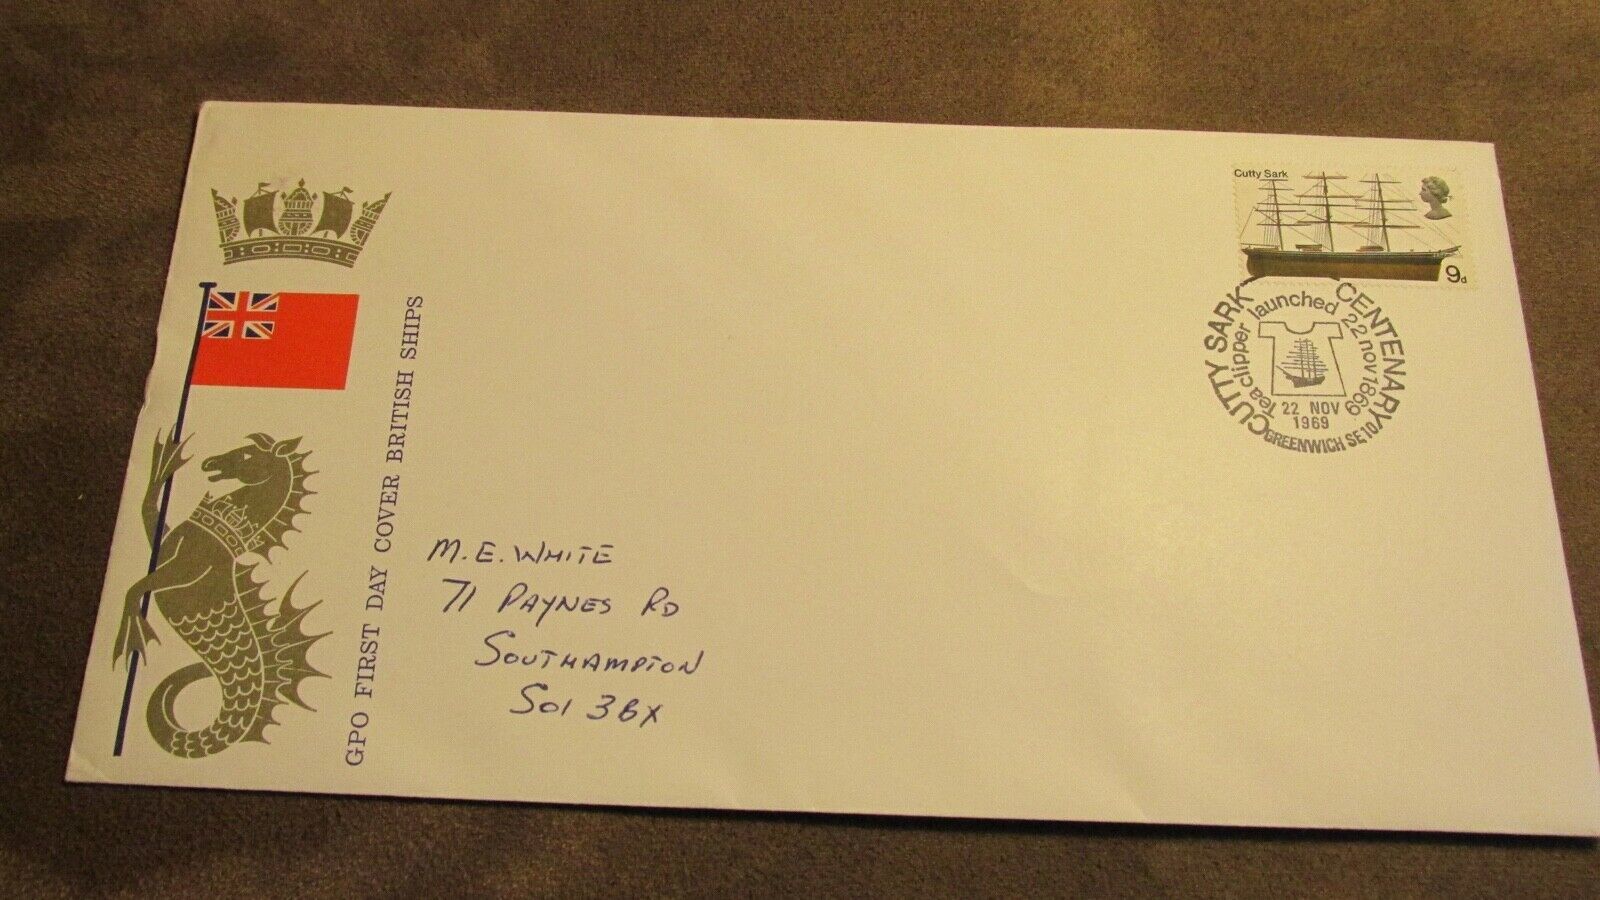 GPO FIRST DAY COVER BRITISH SHIPS
Cutty Sark
9d
CUTTY SARK CENTENARY
Tea clipper launched 22 nov 1869
22 NOV
1969
GREENWICH SE10
M.E. WHITE
71 PAYNES RD
SOUTHAMPTON
SO1 3BX